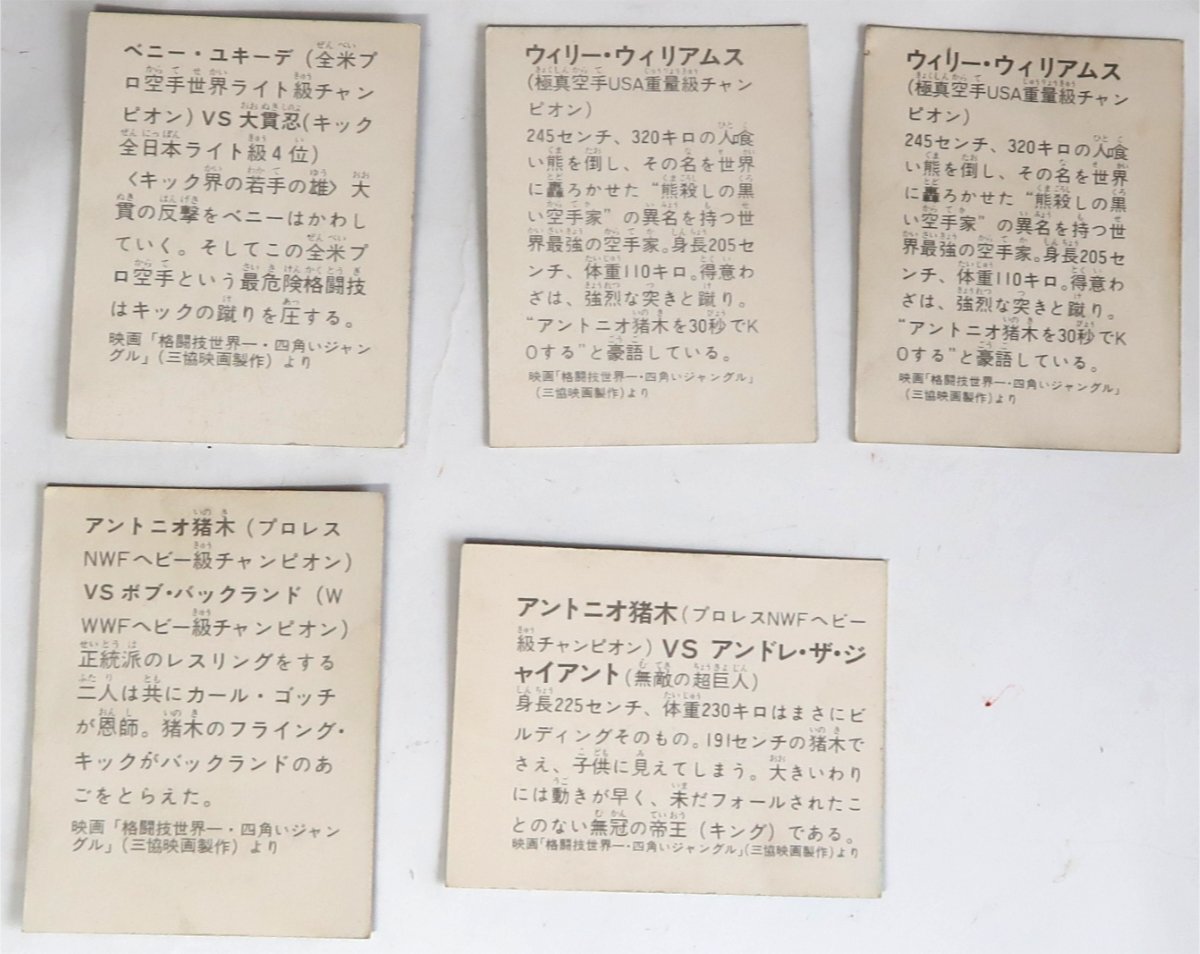 ベニー・ユキーデ（全米プ
ロ空手世界ライト級チャン
ピオン）VS 大貫忍（キック
全日本ライト級4位）
〈キック界の若手の雄〉大
貫の反撃をベニーはかわし
ていく。そしてこの全米プ
ロ空手という最危険格闘技
はキックの蹴りを圧する。
映画「格闘技世界一・四角いジャン
グル」（三協映画製作）より
ウィリー・ウィリアムス
（極真空手USA重量級チャン
ピオン）
245センチ、320キロの人喰
い熊を倒し、その名を世界
に轟ろかせた“熊殺しの黒
い空手家”の異名を持つ世
界最強の空手家。身長205セ
ンチ、体重110キロ。得意わ
ざは、強烈な突きと蹴り。
“アントニオ猪木を30秒でK
Oする”と豪語している。
映画「格闘技世界一・四角いジャングル」
（三協映画製作）より
ウィリー・ウィリアムス
（極真空手USA重量級チャン
ピオン）
245センチ、320キロの人喰
い熊を倒し、その名を世界
に轟ろかせた“熊殺しの黒
い空手家”の異名を持つ世
界最強の空手家。身長205セ
ンチ、体重110キロ。得意わ
ざは、強烈な突きと蹴り。
“アントニオ猪木を30秒でK
Oする”と豪語している。
映画「格闘技世界一・四角いジャングル」
（三協映画製作）より
アントニオ猪木（プロレス
NWFヘビー級チャンピオン）
VS ボブ・バックランド（W
WWFヘビー級チャンピオン）
正統派のレスリングをする
二人は共にカール・ゴッチ
が恩師。猪木のフライング・
キックがバックランドのあ
ごをとらえた。
映画「格闘技世界一・四角いジャン
グル」（三協映画製作）より
アントニオ猪木（プロレスNWFヘビー
級チャンピオン）VS アンドレ・ザ・ジ
ャイアント（無敵の超巨人）
身長225センチ、体重230キロはまさにビ
ルディングそのもの。191センチの猪木で
さえ、子供に見えてしまう。大きいわり
には動きが早く、未だフォールされたこ
とのない無冠の帝王（キング）である。
映画「格闘技世界一・四角いジャングル」（三協映画製作）より